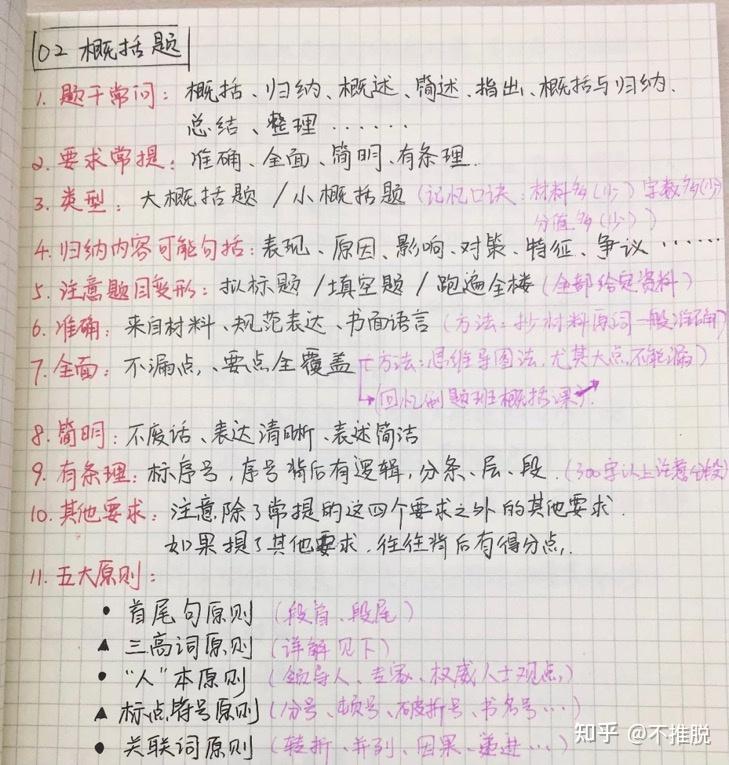 02 概括题
1. 题干常问：概括、归纳、概述、简述、指出、概括与归纳、
总结、整理……
2. 要求常提：准确、全面、简明、有条理.
3. 类型：大概括题 / 小概括题（记忆口诀：材料多(少) 字数多(少)
分值多(少)）
4. 归纳内容可能包括：表现、原因、影响、对策、特征、争议……
5. 注意题目变形：拟标题 / 填空题 / 跑遍全楼（全部给定资料）
6. 准确：来自材料、规范表达、书面语言（方法：抄材料原词一般准确）
7. 全面：不漏点、要点全覆盖 方法：思维导图法，尤其大点，不能漏）
回忆刷题班概括课）.
8. 简明：不废话、表达清晰、表述简洁
9. 有条理：标序号，序号背后有逻辑，分条、层、段.（300字以上注意分段）
10. 其他要求：注意除了常提的这四个要求之外的其他要求.
如果提了其他要求，往往背后有得分点.
11. 五大原则：
• 首尾句原则（段首、段尾）
▲ 三高词原则（详解见下）
• “人”本原则（领导人、专家、权威人士观点）
▲ 标点符号原则（分号、顿号、破折号、书名号…）
• 关联词原则（转折、并列、因果、递进…）
知乎 @不推脱